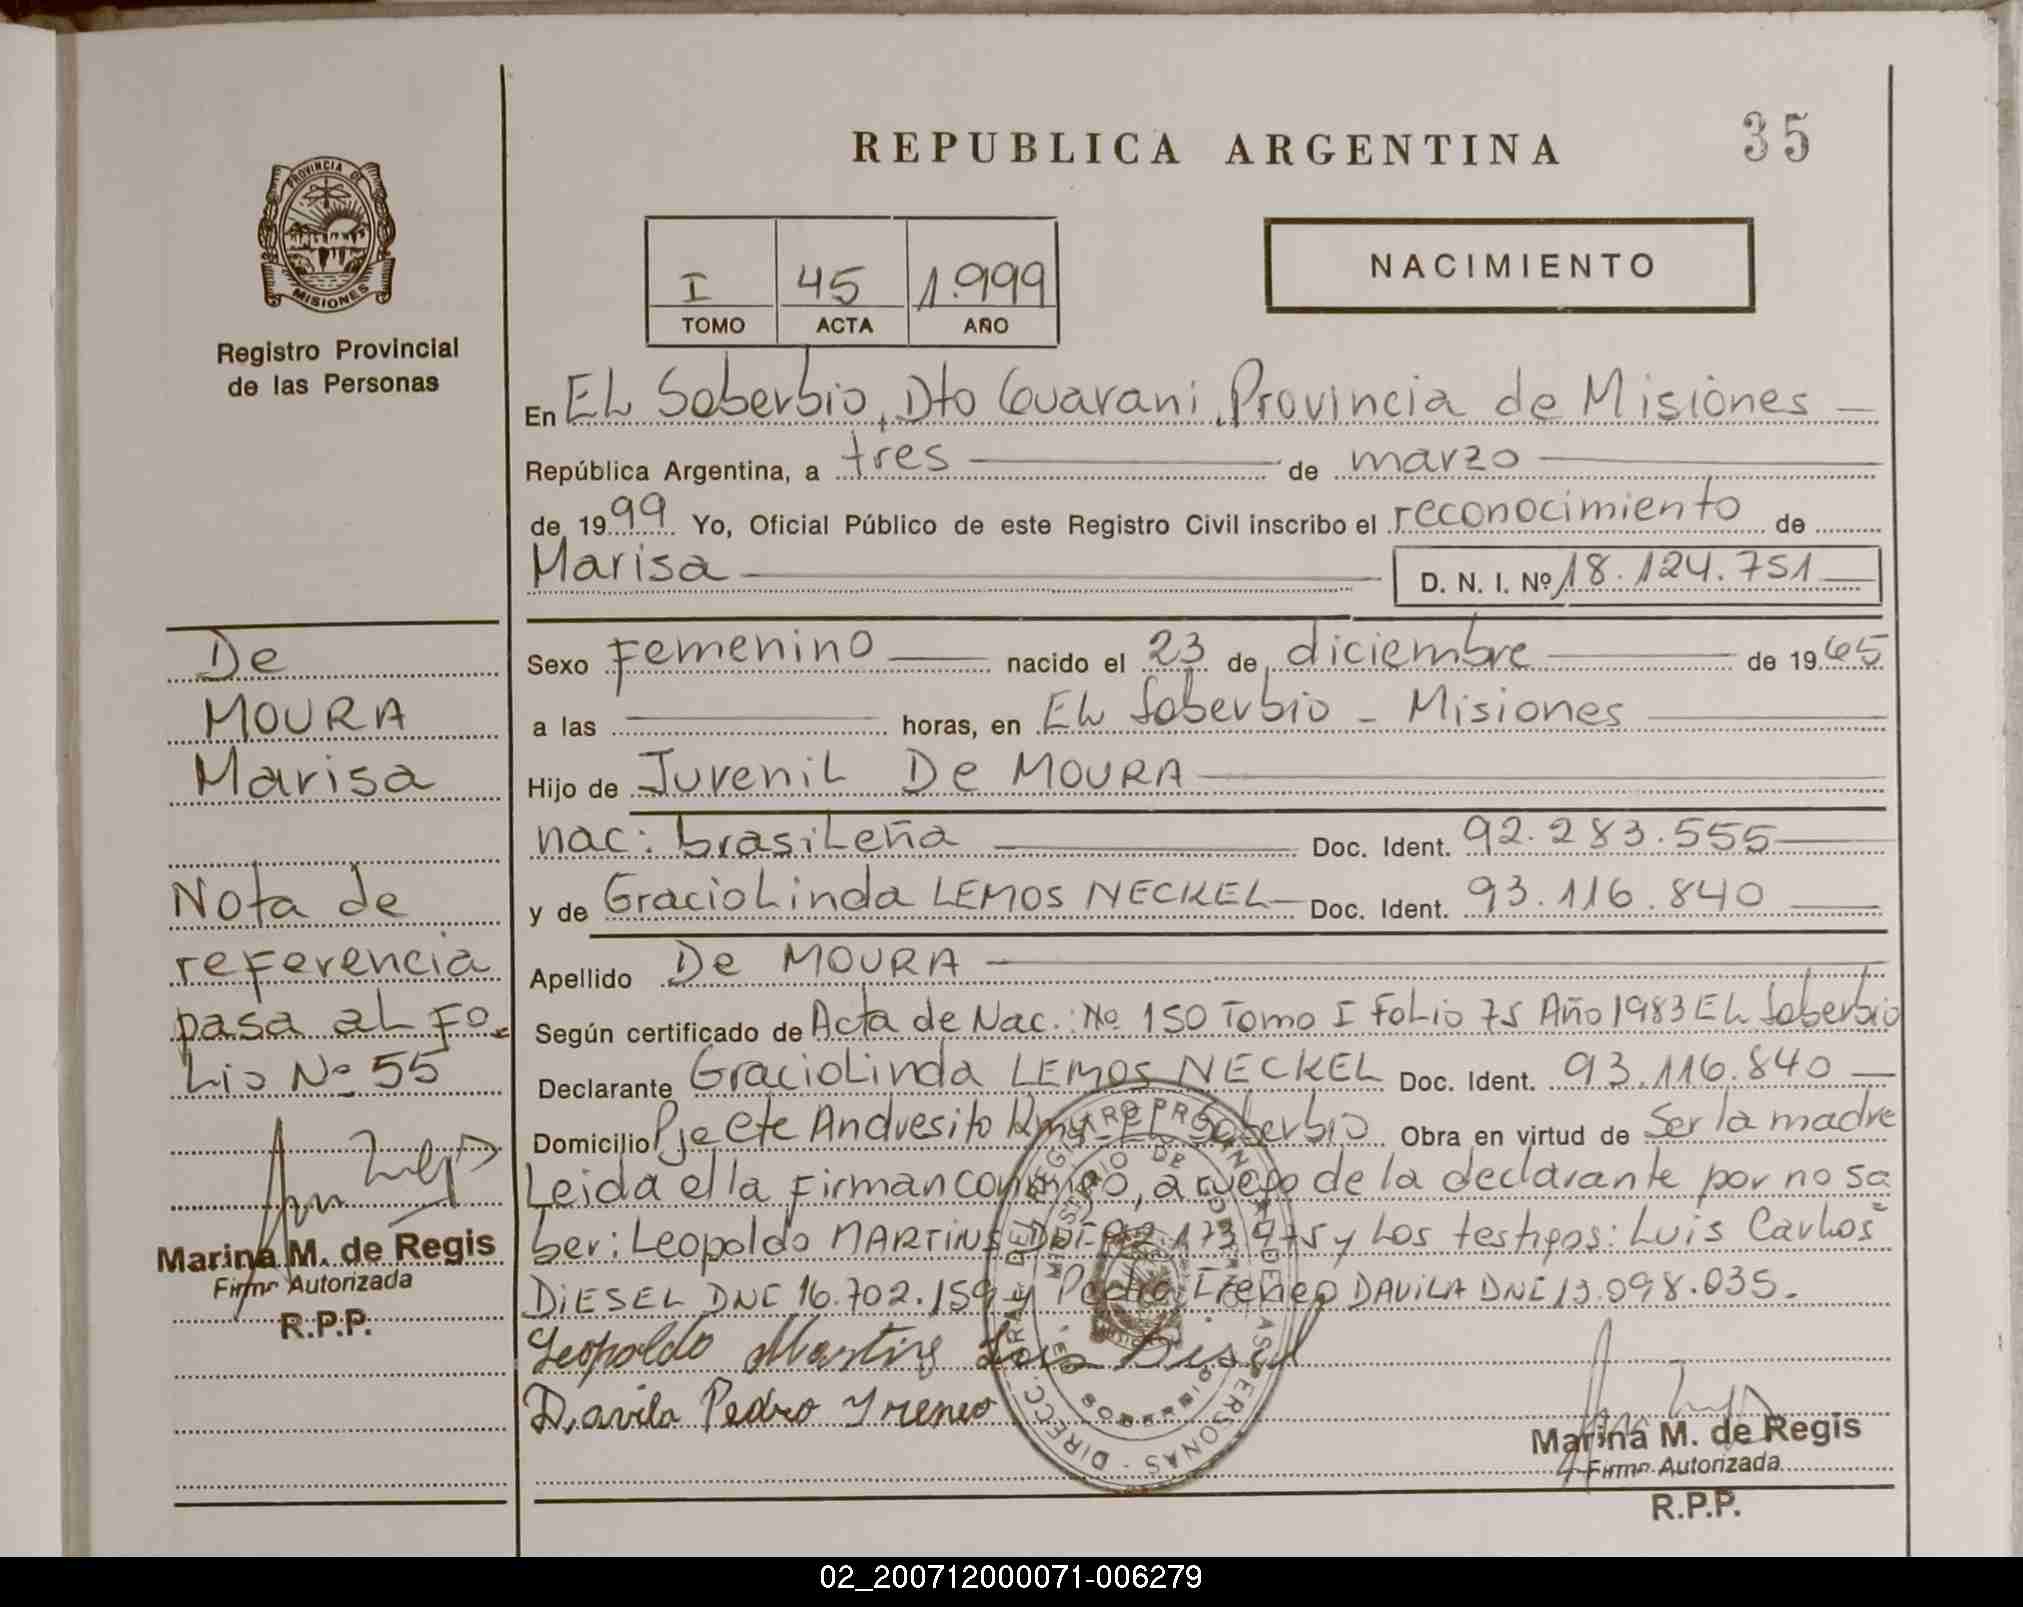 REPUBLICA ARGENTINA
35
PROVINCIA DE
MISIONES
Registro Provincial
de las Personas
I 45 1.999
TOMO ACTA AÑO
NACIMIENTO
En EL Soberbio, Dto Guarani, Provincia de Misiones
República Argentina, a tres de marzo
de 1999 Yo, Oficial Público de este Registro Civil inscribo el reconocimiento de
Marisa D. N. I. Nº 18.124.751
Sexo Femenino nacido el 23 de diciembre de 1965
a las horas, en EL Soberbio - Misiones
Hijo de Juvenil De MOURA
nac: brasileña Doc. Ident. 92.283.555
y de Graciolinda LEMOS NECKEL Doc. Ident. 93.116.840
Apellido De MOURA
Según certificado de Acta de Nac. Nº 150 Tomo I Folio 75 Año 1983 EL Soberbio
Declarante Graciolinda LEMOS NECKEL Doc. Ident. 93.116.840
Domicilio Pje Cte Andresito EL Soberbio Obra en virtud de Ser la madre
Leida ella Firman conmigo, a ruego de la declarante por no sa
ber: Leopoldo MARTINS y los testigos: Luis Carlos
DIESEL DNI 16.702.159 y Pedro Ireneo DAVILA DNI 13.098.035.
Leopoldo Martins Luis Diesel
Davila Pedro Yreneo
Marina M. de Regis
Firma Autorizada
R.P.P.
De
MOURA
Marisa
Nota de
referencia
pasa al Fo
lio Nº 55
Marina M. de Regis
Firma Autorizada
R.P.P.
02_200712000071-006279